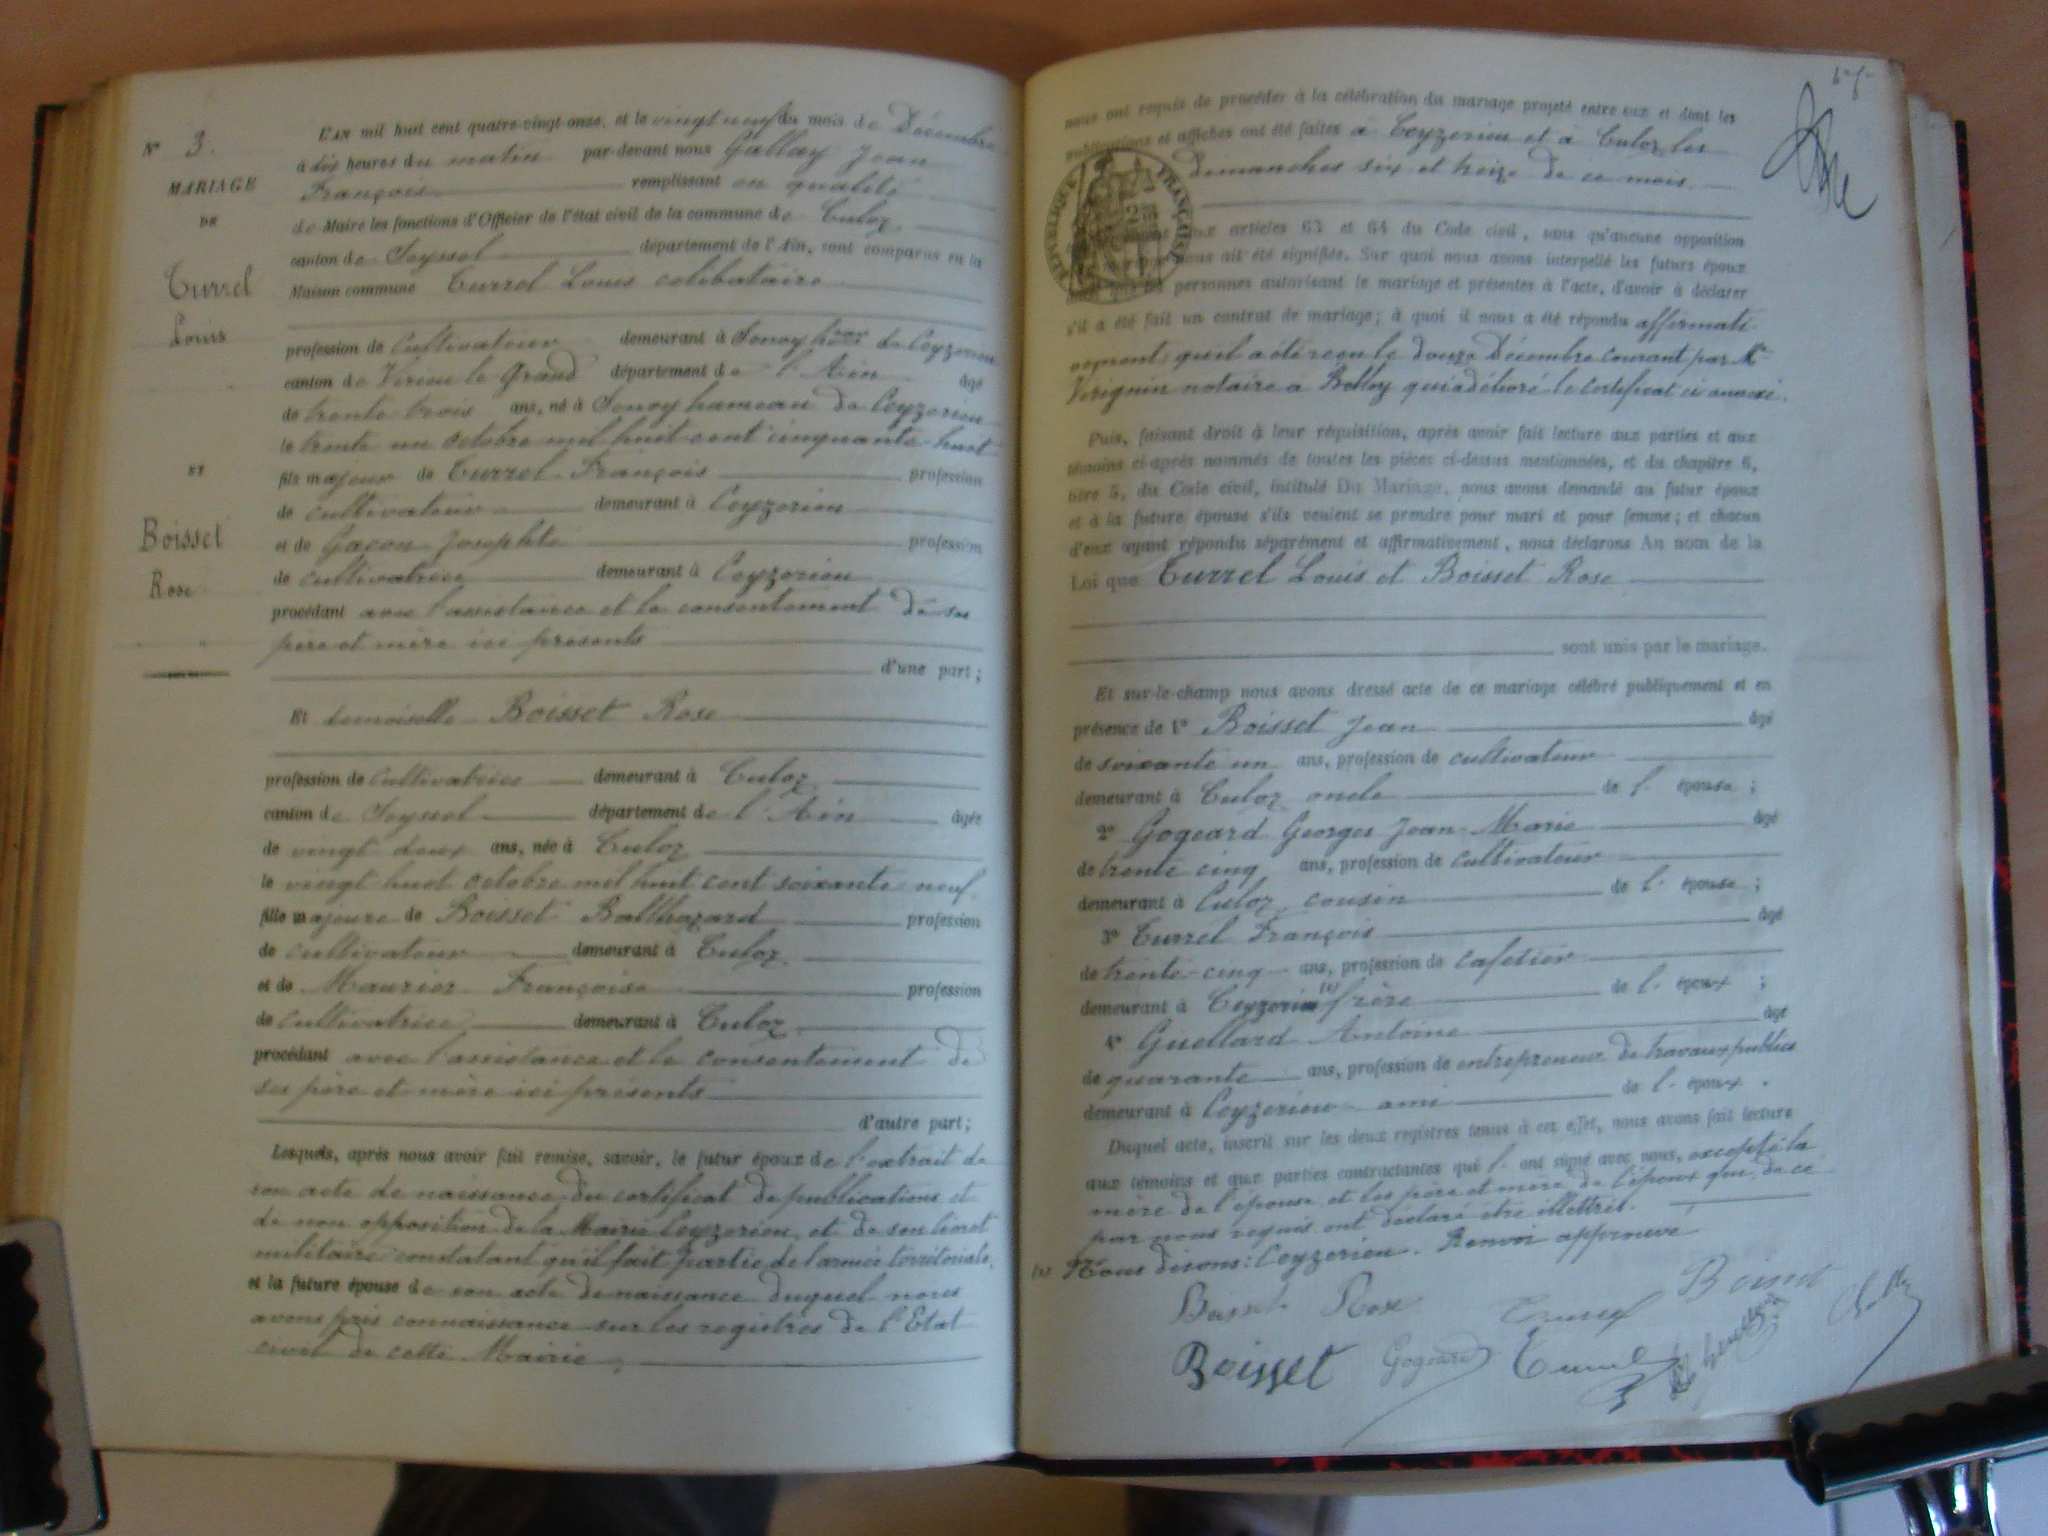 N° 3.
MARIAGE
DE
Turrel
Louis
ET
Boisset
Rose
L'AN mil huit cent quatre-vingt-onze, et le vingt neuf du mois de Décembre
à dix heures du matin par-devant nous Gallay Jean
François remplissant en qualité
de Maire les fonctions d'Officier de l'état civil de la commune de Culoz
canton de Seyssel département de l'Ain, sont comparus en la
Maison commune Turrel Louis célibataire
profession de cultivateur demeurant à Sonoy hau de Ceyzerieu
canton de Virieu le Grand département de l'Ain âgé
de trente trois ans, né à Sonoy hameau de Ceyzerieu
le trente un octobre mil huit cent cinquante-huit
fils majeur de Turrel François profession
de cultivateur demeurant à Ceyzerieu
et de Gacon Josephte profession
de cultivatrice demeurant à Ceyzerieu
procédant avec l'assistance et le consentement de ses
père et mère ici présents
d'une part;
Et demoiselle Boisset Rose
profession de cultivatrice demeurant à Culoz
canton de Seyssel département de l'Ain âgée
de vingt deux ans, née à Culoz
le vingt huit octobre mil huit cent soixante neuf
fille majeure de Boisset Balthazard profession
de cultivateur demeurant à Culoz
et de Maurier Françoise profession
de cultivatrice demeurant à Culoz
procédant avec l'assistance et le consentement de
ses père et mère ici présents
d'autre part;
Lesquels, après nous avoir fait remise, savoir, le futur époux de l'extrait de
son acte de naissance du certificat de publications et
de non opposition de la Mairie Ceyzerieu, et de son livret
militaire constatant qu'il fait partie de l'armée territoriale,
et la future épouse de son acte de naissance duquel nous
avons pris connaissance sur les registres de l'Etat
civil de cette Mairie
nous ont requis de procéder à la célébration du mariage projeté entre eux et dont les
publications et affiches ont été faites à Ceyzerieu et à Culoz les
dimanches six et treize de ce mois
RÉPUBLIQUE FRANÇAISE
aux articles 63 et 64 du Code civil, sans qu'aucune opposition
nous ait été signifiée. Sur quoi nous avons interpellé les futurs époux
personnes autorisant le mariage et présentes à l'acte, d'avoir à déclarer
s'il a été fait un contrat de mariage; à quoi il nous a été répondu affirmati
vement, qu'il a été reçu le douze Décembre courant par Me
Virignin notaire à Belley qui a délivré le certificat ci annexé.
Puis, faisant droit à leur réquisition, après avoir fait lecture aux parties et aux
témoins ci-après nommés de toutes les pièces ci-dessus mentionnées, et du chapitre 6,
titre 5, du Code civil, intitulé Du Mariage, nous avons demandé au futur époux
et à la future épouse s'ils veulent se prendre pour mari et pour femme; et chacun
d'eux ayant répondu séparément et affirmativement, nous déclarons Au nom de la
Loi que Turrel Louis et Boisset Rose
sont unis par le mariage.
Et sur-le-champ nous avons dressé acte de ce mariage célébré publiquement et en
présence de 1° Boisset Jean âgé
de soixante un ans, profession de cultivateur
demeurant à Culoz oncle de l' épouse;
2° Gogeard Georges Jean-Marie âgé
de trente cinq ans, profession de cultivateur
demeurant à Culoz, cousin de l' épouse;
3° Turrel François âgé
de trente-cinq ans, profession de cafetier
demeurant à Ceyzerieu (a) frère de l' époux;
4° Guellard Antoine âgé
de quarante ans, profession de entrepreneur de travaux publics
demeurant à Ceyzerieu ami de l' époux.
Duquel acte, inscrit sur les deux registres tenus à cet effet, nous avons fait lecture
aux témoins et aux parties contractantes qui l' ont signé avec nous, excepté la
mère de l'épouse et les père et mère de l'époux qui, de ce
par nous requis ont déclaré être illettrés.
(a) Nous disons: Ceyzerieu. Renvoi approuvé
Boisset Rose Turrel Boisset
Boisset Gogeard Turrel